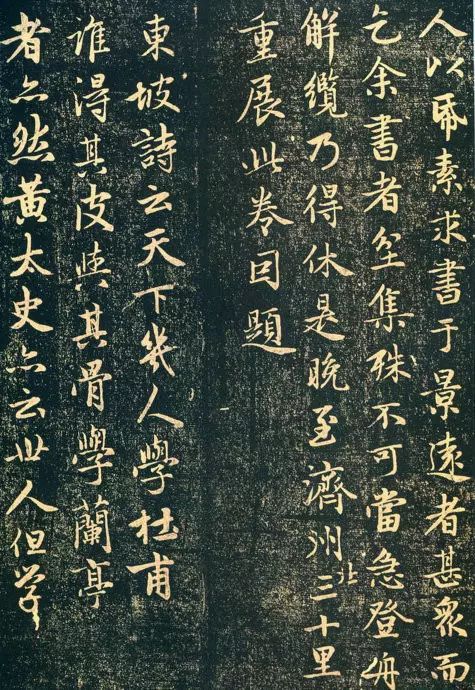 人以㡧素求書于景遠者甚衆而
乞余書者坌集殊不可當急登舟
解纜乃得休是晚至濟州北三十里
重展此卷因題
東坡詩云天下幾人學杜甫
誰得其皮與其骨學蘭亭
者亦然黃太史亦云世人但學